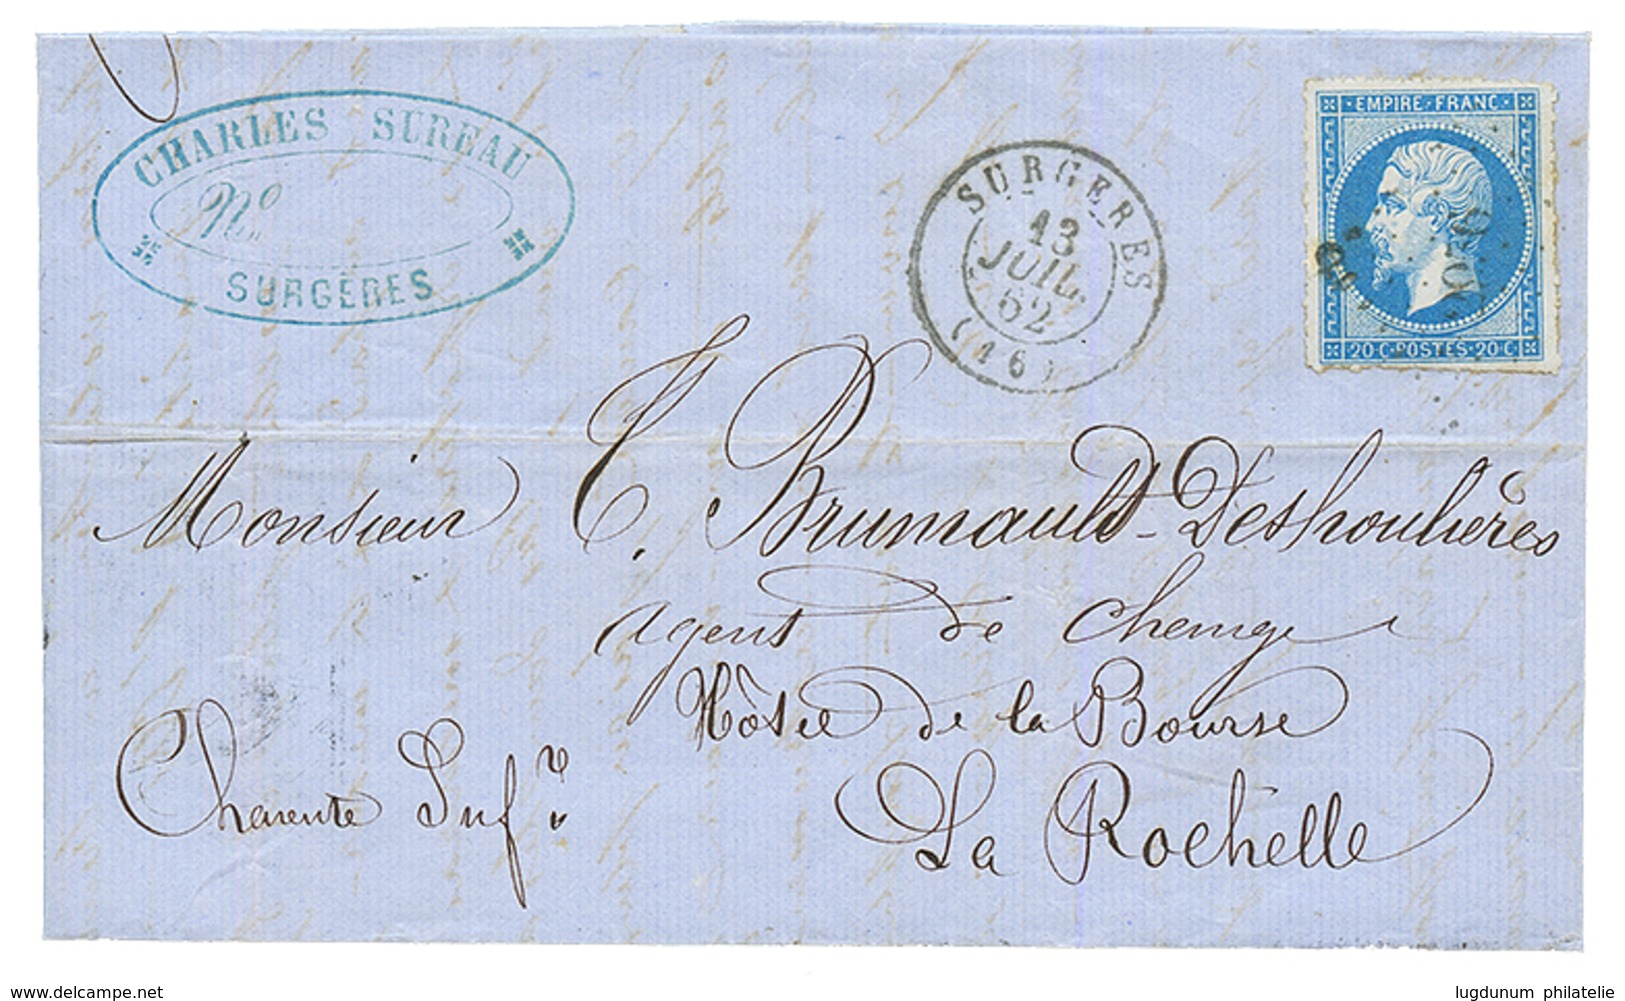 CHARLES SUREAU
No
SURGÈRES
SURGERES
13
JUIL.
62
(16)
EMPIRE · FRANC ·
20 C · POSTES · 20 C
Monsieur E. Brumauld-Deshoulières
agent de change
Hôtel de la Bourse
Charente Infre
La Rochelle
www.delcampe.net
lugdunum philatelie